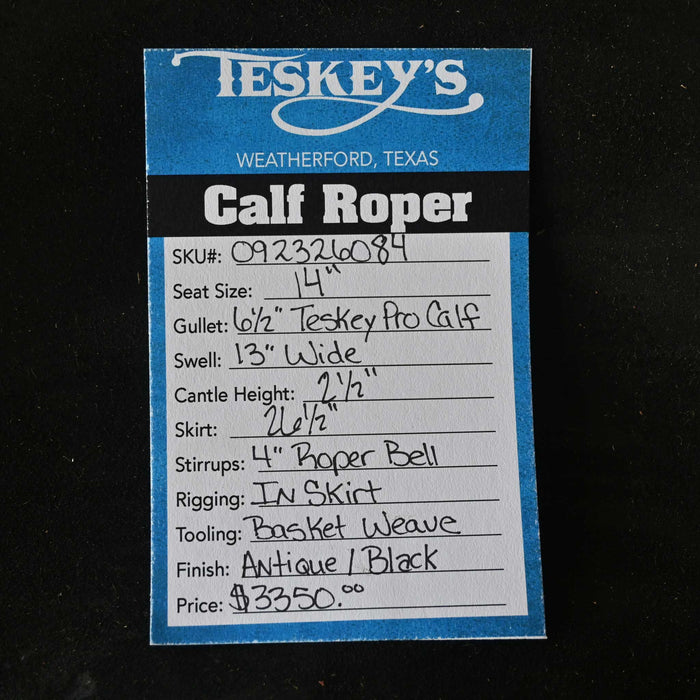 TESKEY'S
WEATHERFORD, TEXAS
Calf Roper
SKU#: 092326084
Seat Size: 14"
Gullet: 6½" Teskey Pro Calf
Swell: 13" Wide
Cantle Height: 2½"
Skirt: 26½"
Stirrups: 4" Roper Bell
Rigging: IN SKirt
Tooling: Basket Weave
Finish: Antique / Black
Price: $3350.00